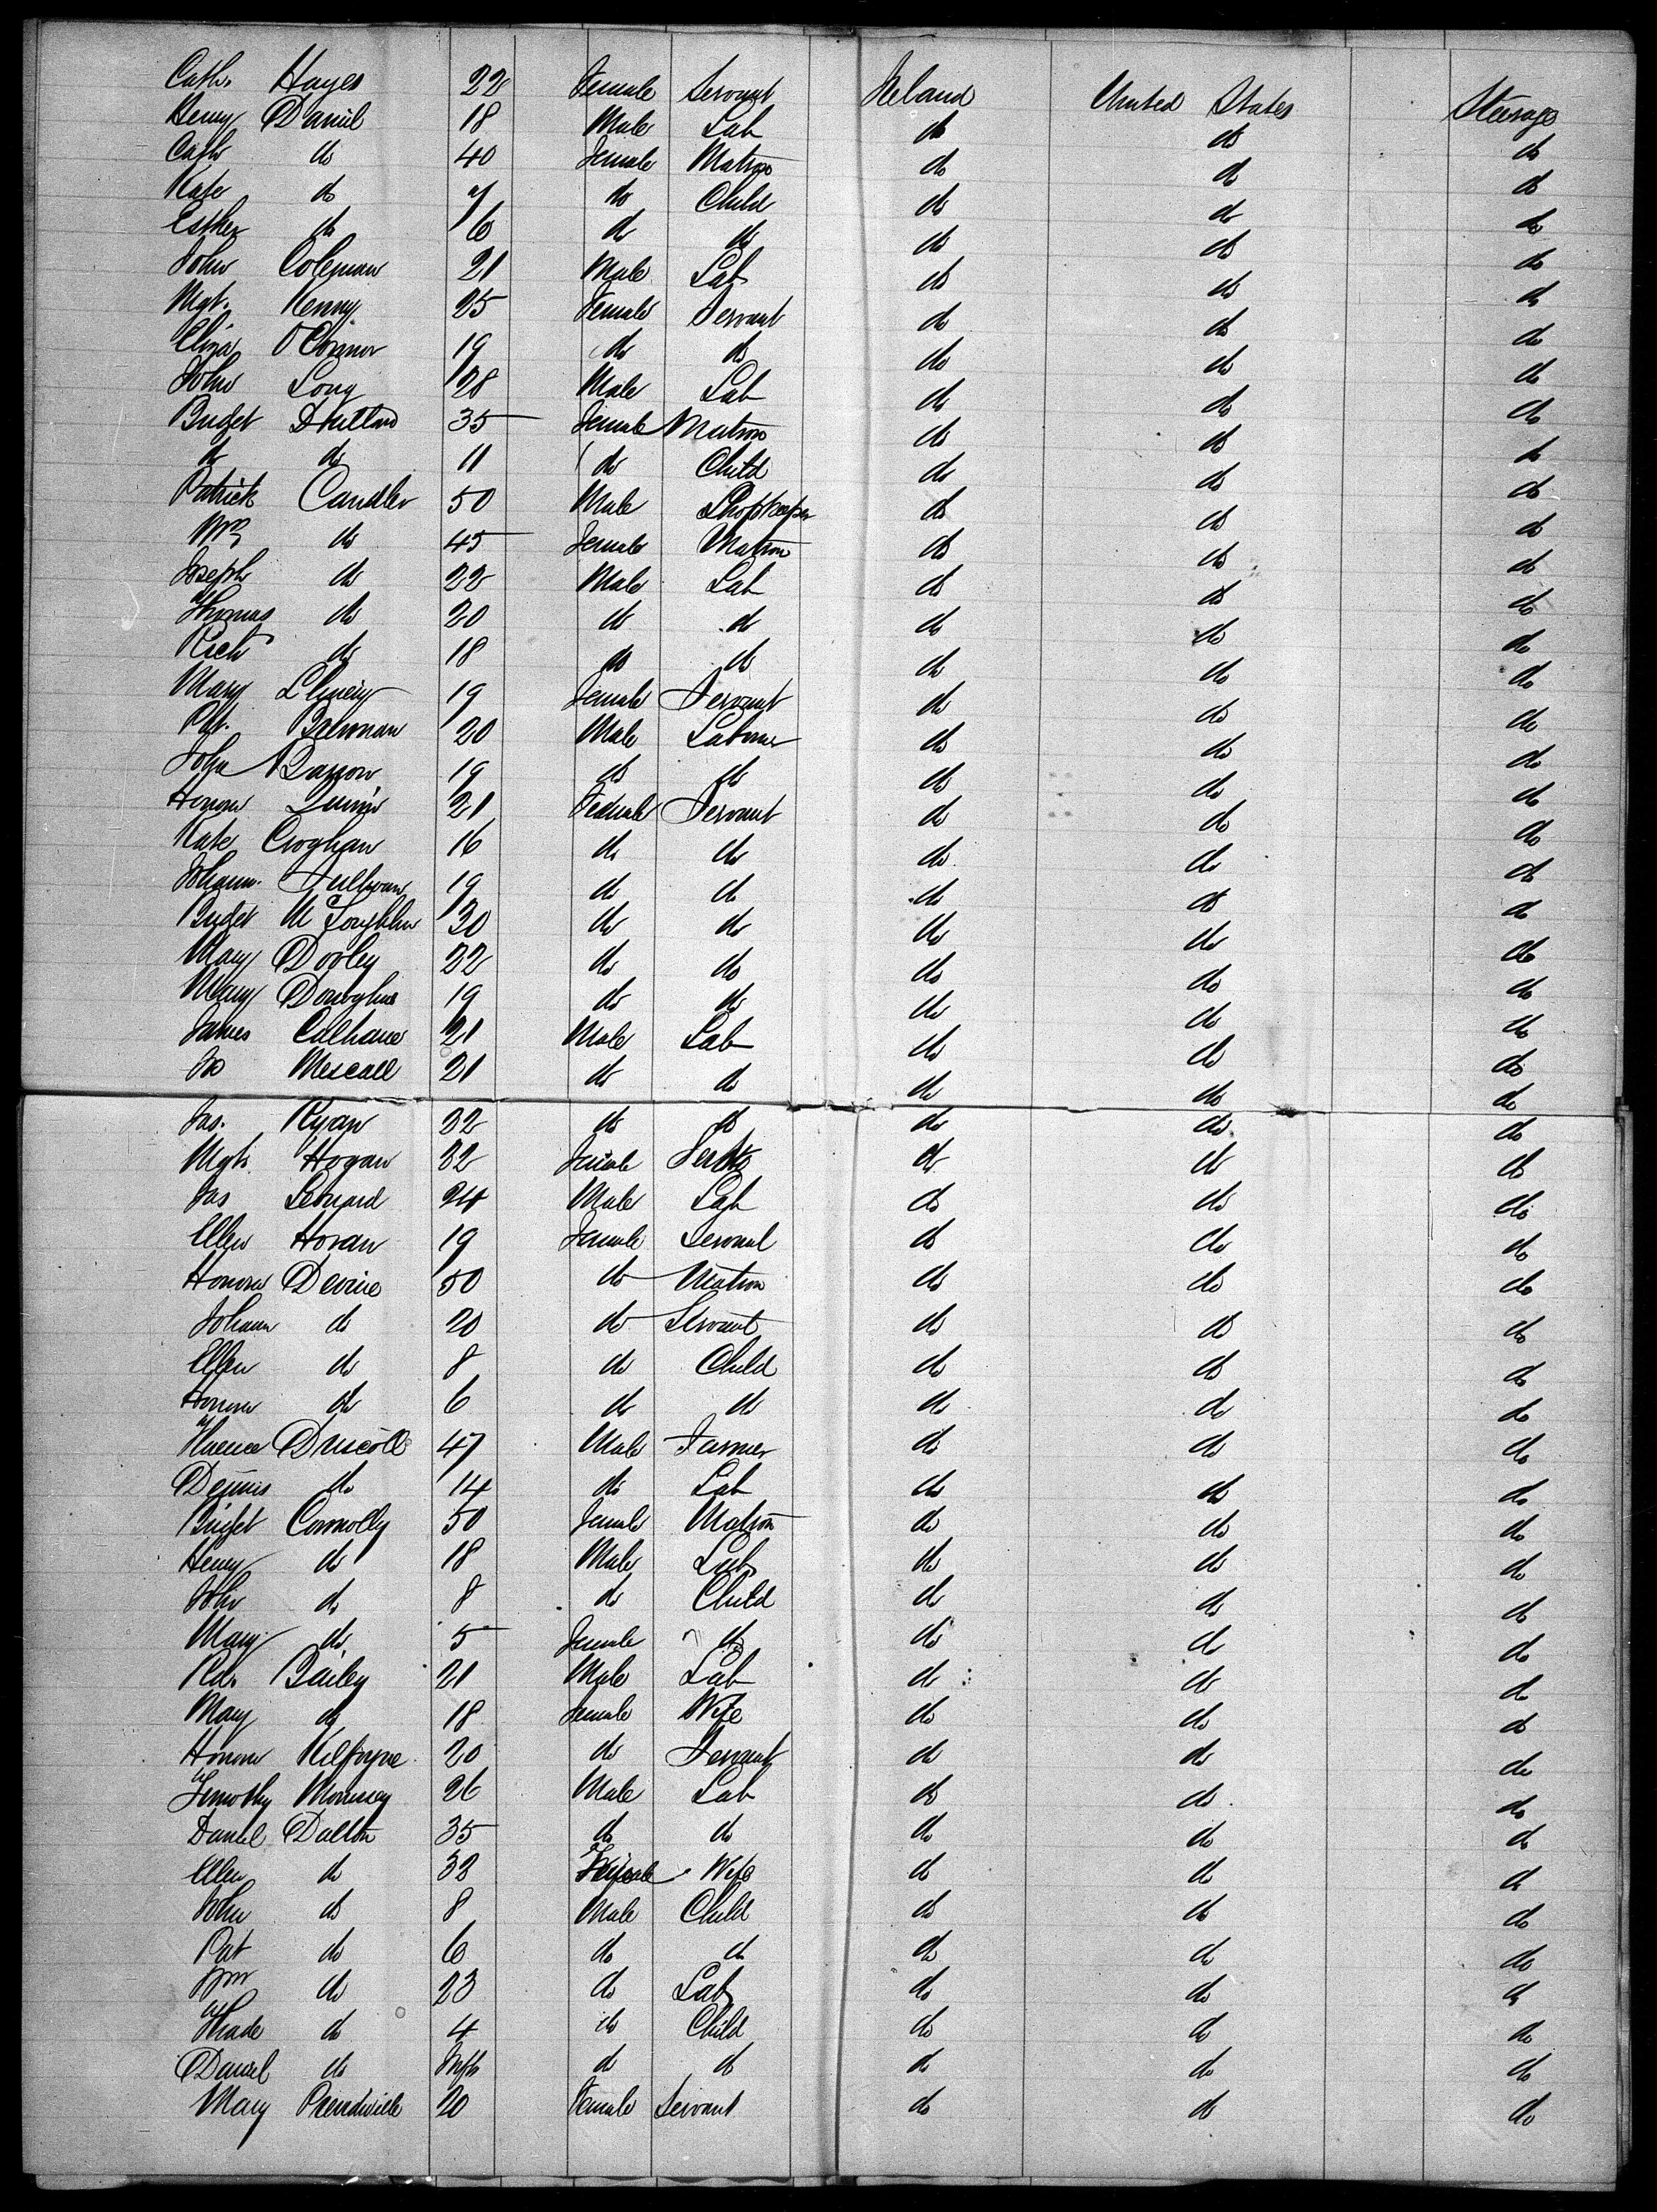 Cath. Hayes 22 Female Servant Ireland United States Steerage
Henry Daniel 18 Male Lab do do do
Cath do 40 Female Matron do do do
Kate do 7 do Child do do do
Esther do 6 do do do do do
John Coleman 21 Male Lab do do do
Mgt. Kenny 25 Female Servant do do do
Eliza O'Connor 19 do do do do do
John Long 28 Male Lab do do do
Bridget 35 Female Matron do do do
do do 11 do Child do do do
Patrick Candler 50 Male Shopkeeper do do do
do 45 Female Matron do do do
Joseph do 22 Male Lab do do do
Thomas do 20 do do do do do
Rich do 18 do do do do do
Mary 19 Female Servant do do do
Pat. 20 Male Laborer do do do
John Barron 19 do do do do do
Honora Quinn 21 Female Servant do do do
Kate Croghan 16 do do do do do
Johann. Sullivan 19 do do do do do
Bridget McLoughlin 30 do do do do do
Mary Dooley 22 do do do do do
Mary Donoghue 19 do do do do do
James Calhane 21 Male Lab do do do
Jno Mescall 21 do do do do do
Jas. Ryan 22 do do do do do
Mgt. Hogan 32 Female do do do
Jas Leonard 24 Male Lab do do do
Ellen Horan 19 Female Servant do do do
Honora Devine 50 do Matron do do do
Johann do 20 do Servant do do do
Ellen do 8 do Child do do do
Honora do 6 do do do do do
Florence Driscoll 47 Male Farmer do do do
Dennis do 14 do Lab do do do
Bridget Connolly 50 Female Matron do do do
Henry do 18 Male Lab do do do
John do 8 do Child do do do
Mary do 5 Female do do do do
Rd. Bailey 21 Male Lab do do do
Mary do 18 Female Wife do do do
Honora Kilfoyne 20 do Servant do do do
Timothy Morrissey 26 Male Lab do do do
Daniel Dalton 35 do do do do do
Ellen do 32 Female Wife do do do
John do 8 Male Child do do do
Pat do 6 do do do do do
Wm do 23 do Lab do do do
Thade do 4 do Child do do do
Daniel do Infts do do do do do
Mary Prendiville 20 Female Servant do do do